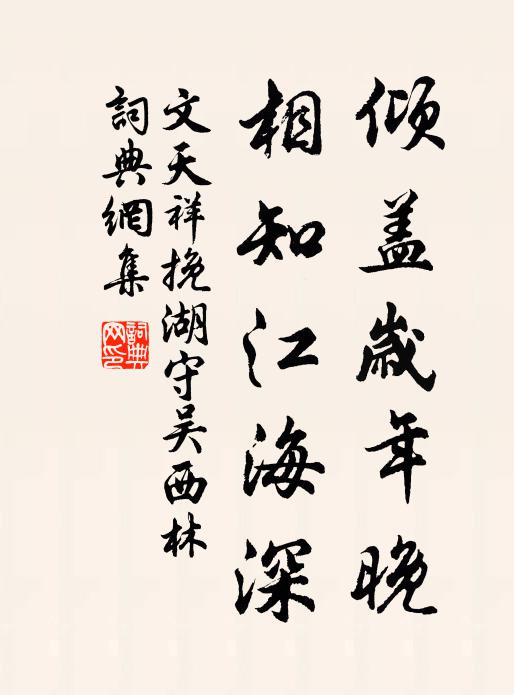 倾盖岁年晚
相知江海深
文天祥挽湖守吴西林
詞典網集
詞典网印